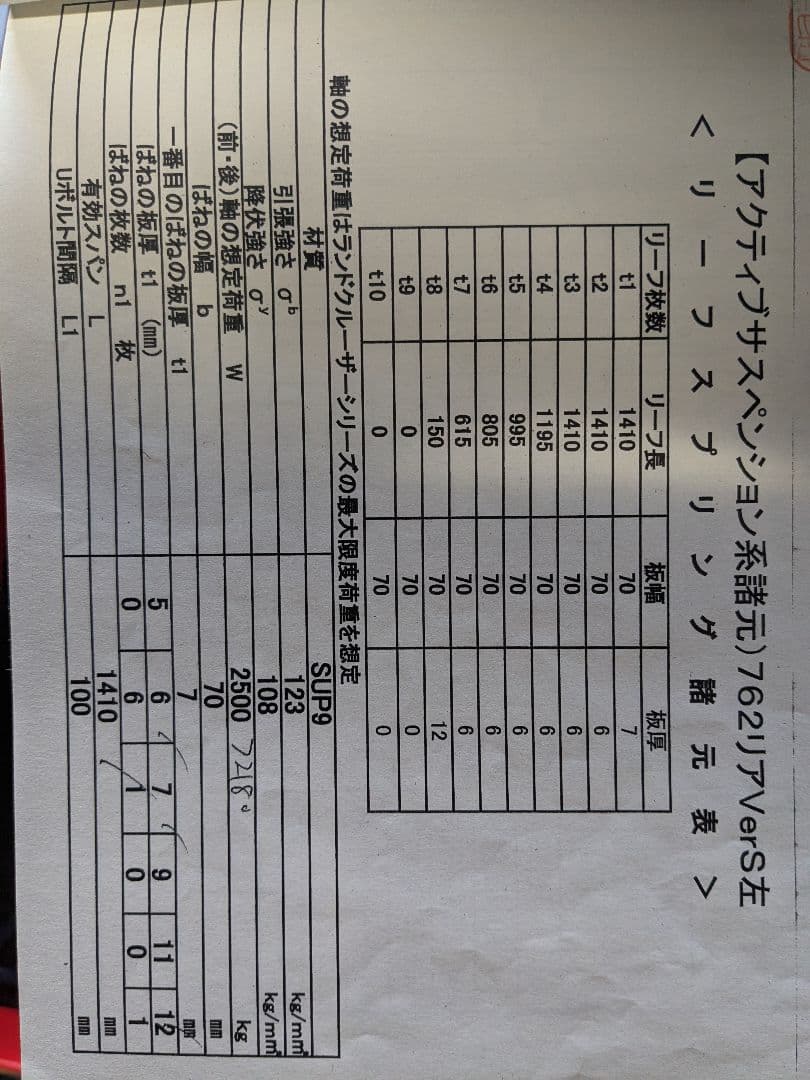 【アクティブサスペンション系諸元)762リアVerS左
＜リーフスプリング諸元表＞
リーフ枚数 リーフ長 板幅 板厚
t1 1410 70 7
t2 1410 70 6
t3 1410 70 6
t4 1195 70 6
t5 995 70 6
t6 805 70 6
t7 615 70 6
t8 150 70 12
t9 0 70 0
t10 0 70 0
軸の想定荷重はランドクルーザーシリーズの最大限度荷重を想定
材質 SUP9
引張強さ σb 123 kg/mm²
降伏強さ σy 108 kg/mm²
(前・後)軸の想定荷重 W 2500 >2180 kg
ばねの幅 b 70 mm
一番目のばねの板厚 t1 7 mm
ばねの板厚 t1 (mm) 5 6 7 9 11 12
ばねの枚数 n1 枚 0 6 1 0 0 1
有効スパン L 1410 mm
Uボルト間隔 L1 100 mm